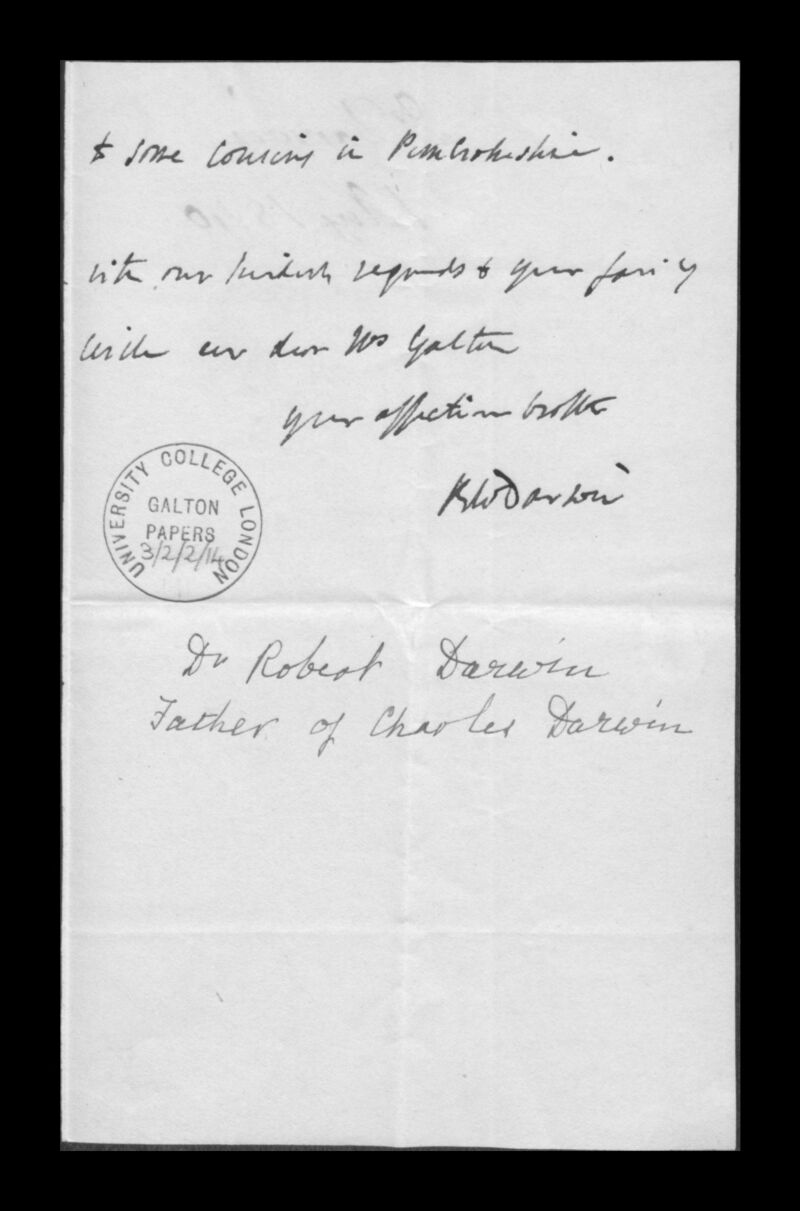 & some cousins in Pembrokeshire.
with our kindest regards & your family
circle our dear Mrs Galton
your affection brother
RWDarwin
UNIVERSITY COLLEGE LONDON
GALTON
PAPERS
3/2/2/14
Dr Robert Darwin
Father of Charles Darwin